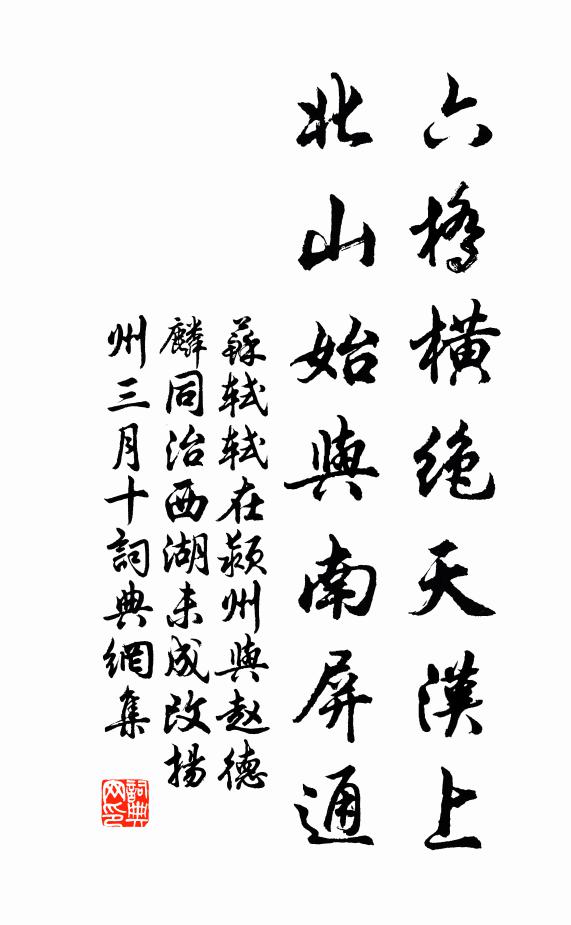 六橋橫絕天漢上
北山始與南屏通
蘇軾軾在颍州與赵德
麟同治西湖未成改揚
州三月十詞典網集
詞典
网印